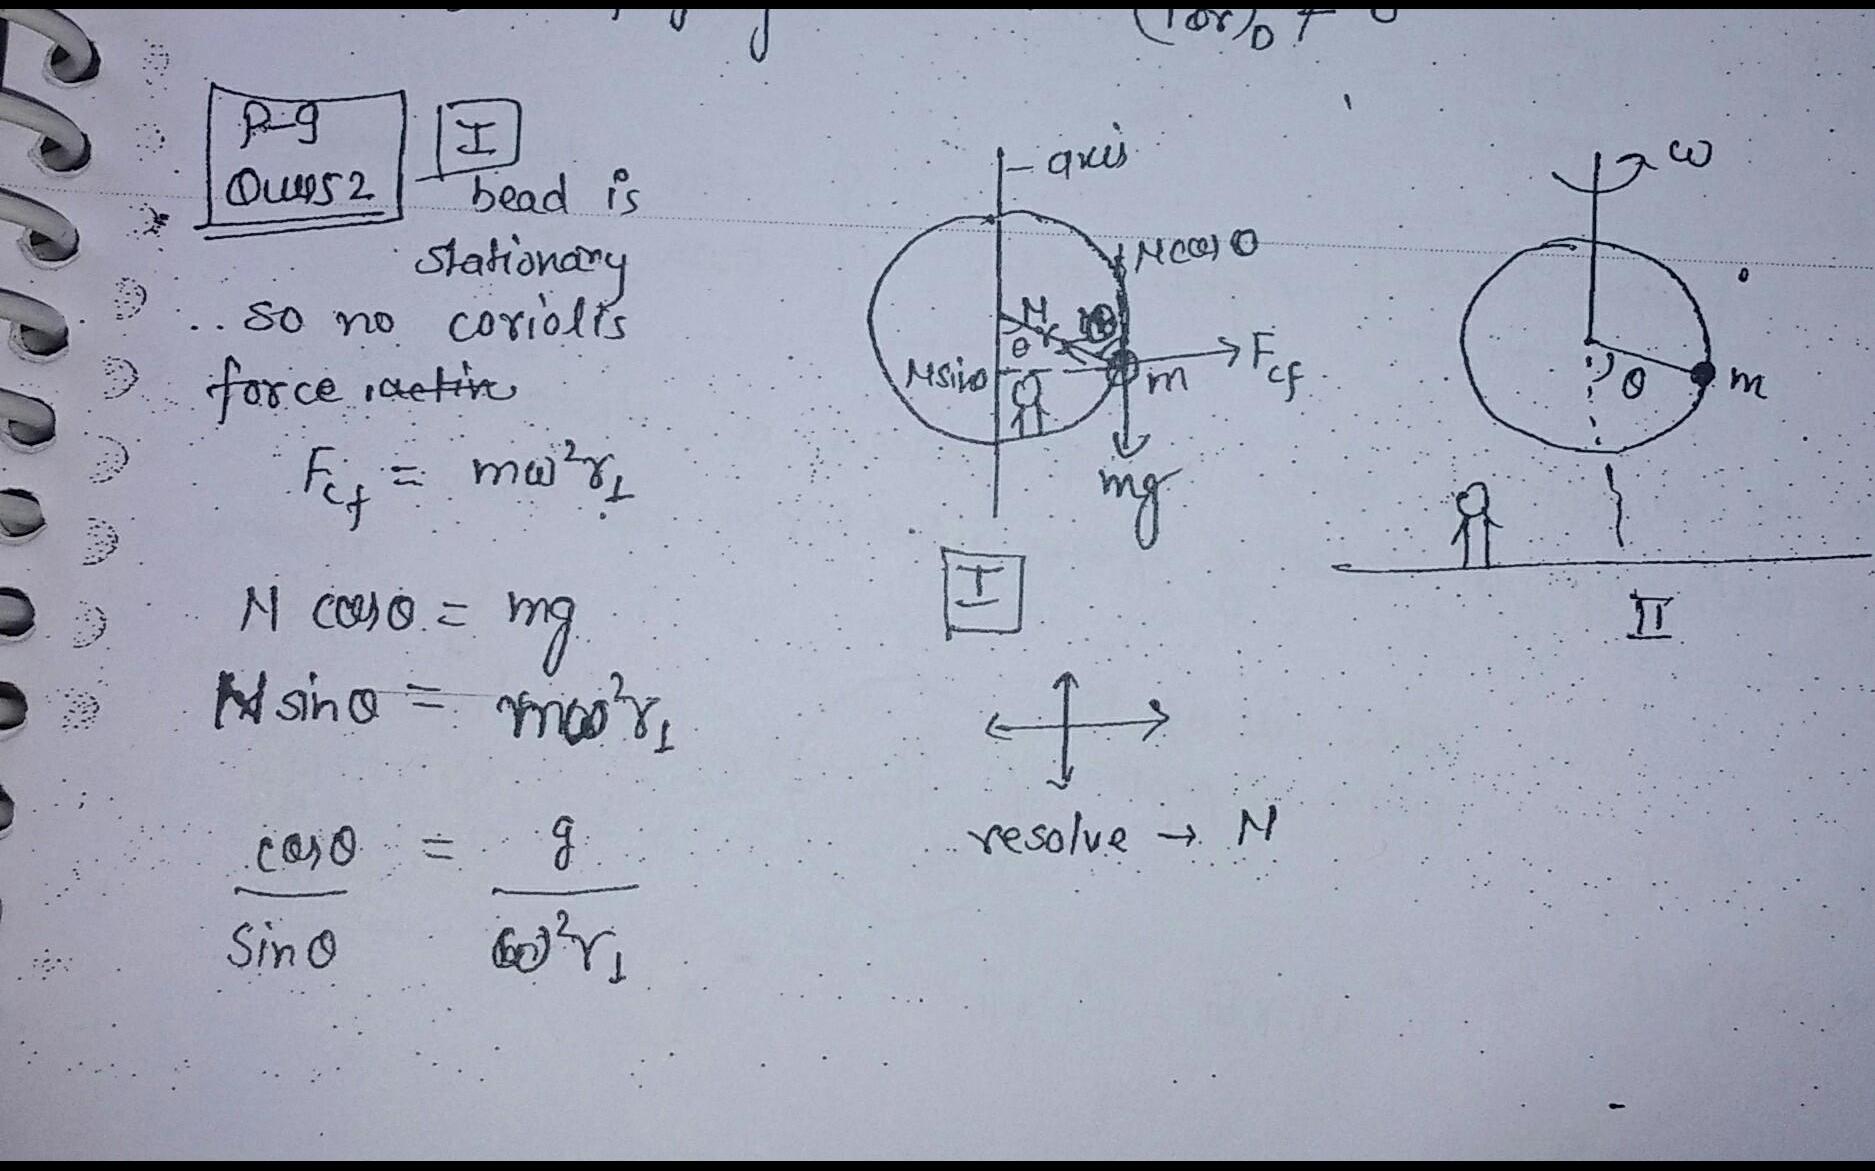 P-9
Ques 2
I
bead is
stationary
so no coriolis
force
F_cf = mω²r⊥
N cosθ = mg
N sinθ = mω²r⊥
cosθ / sinθ = g / ω²r⊥
axis
N cosθ
N
r
θ
N sinθ
m
F_cf
mg
I
resolve → N
ω
θ
m
II